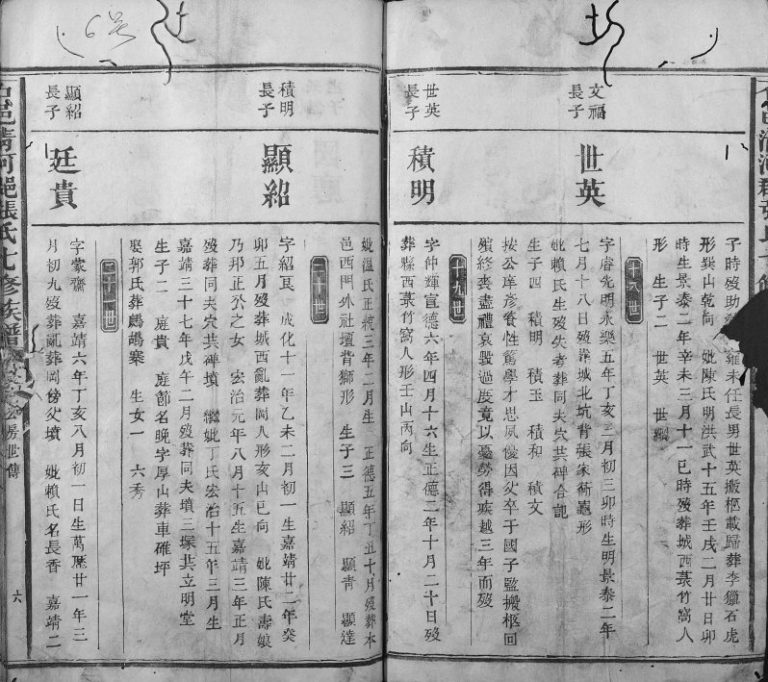 子時歿助
未任長男世英搬柩載歸葬李獵石虎
形巽山乾向 妣陳氏明洪武十五年壬戌二月廿日卯
時生景泰二年辛未三月十一巳時歿葬城西蓑竹窩人
形 生子二 世英
文福
長子
世英
十八世
字睿先明永樂五年丁亥二月初三卯時生明景泰二年
七月十八日歿葬城北坑背張家術 形
妣賴氏生歿失考葬同夫穴共碑合記
生子四 積明 積玉 積和 積文
按公庠彦賓性篤學才思夙優因父卒于國子監搬柩回
殯終喪盡禮哀毀過度竟以憂勞得疾越三年而歿
世英
長子
積明
十九世
字仲輝宣德六年四月十六生正德二年十月二十日歿
葬縣西蓑竹窩人形壬山丙向
妣溫氏正統三年二月生 正德五年丁丑十月歿葬本
邑西門外社壇背獅形 生子三 顯紹 顯青 顯達
積明
長子
顯紹
二十世
字紹 成化十一年乙未二月初一生嘉靖廿二年癸
卯五月歿葬城西亂葬岡人形亥山巳向 妣陳氏壽娘
乃邦正公之女 宏治元年八月十五生嘉靖三年正月
歿葬同夫穴共碑墳 繼妣丁氏宏治十五年三月生
嘉靖三十七年戊午二月歿葬同夫墳三塚共立明堂
生子二 庭貴 庭節名晚字厚山葬車碓坪
娶郭氏葬鷓鴣寨 生女一 六秀
顯紹
長子
廷貴
二十一世
字蒙齋 嘉靖六年丁亥八月初一日生萬歷廿一年三
月初九歿葬亂葬岡傍父墳 妣賴氏名長香 嘉靖二
邑清河郡張氏七修族譜
房世傳
六